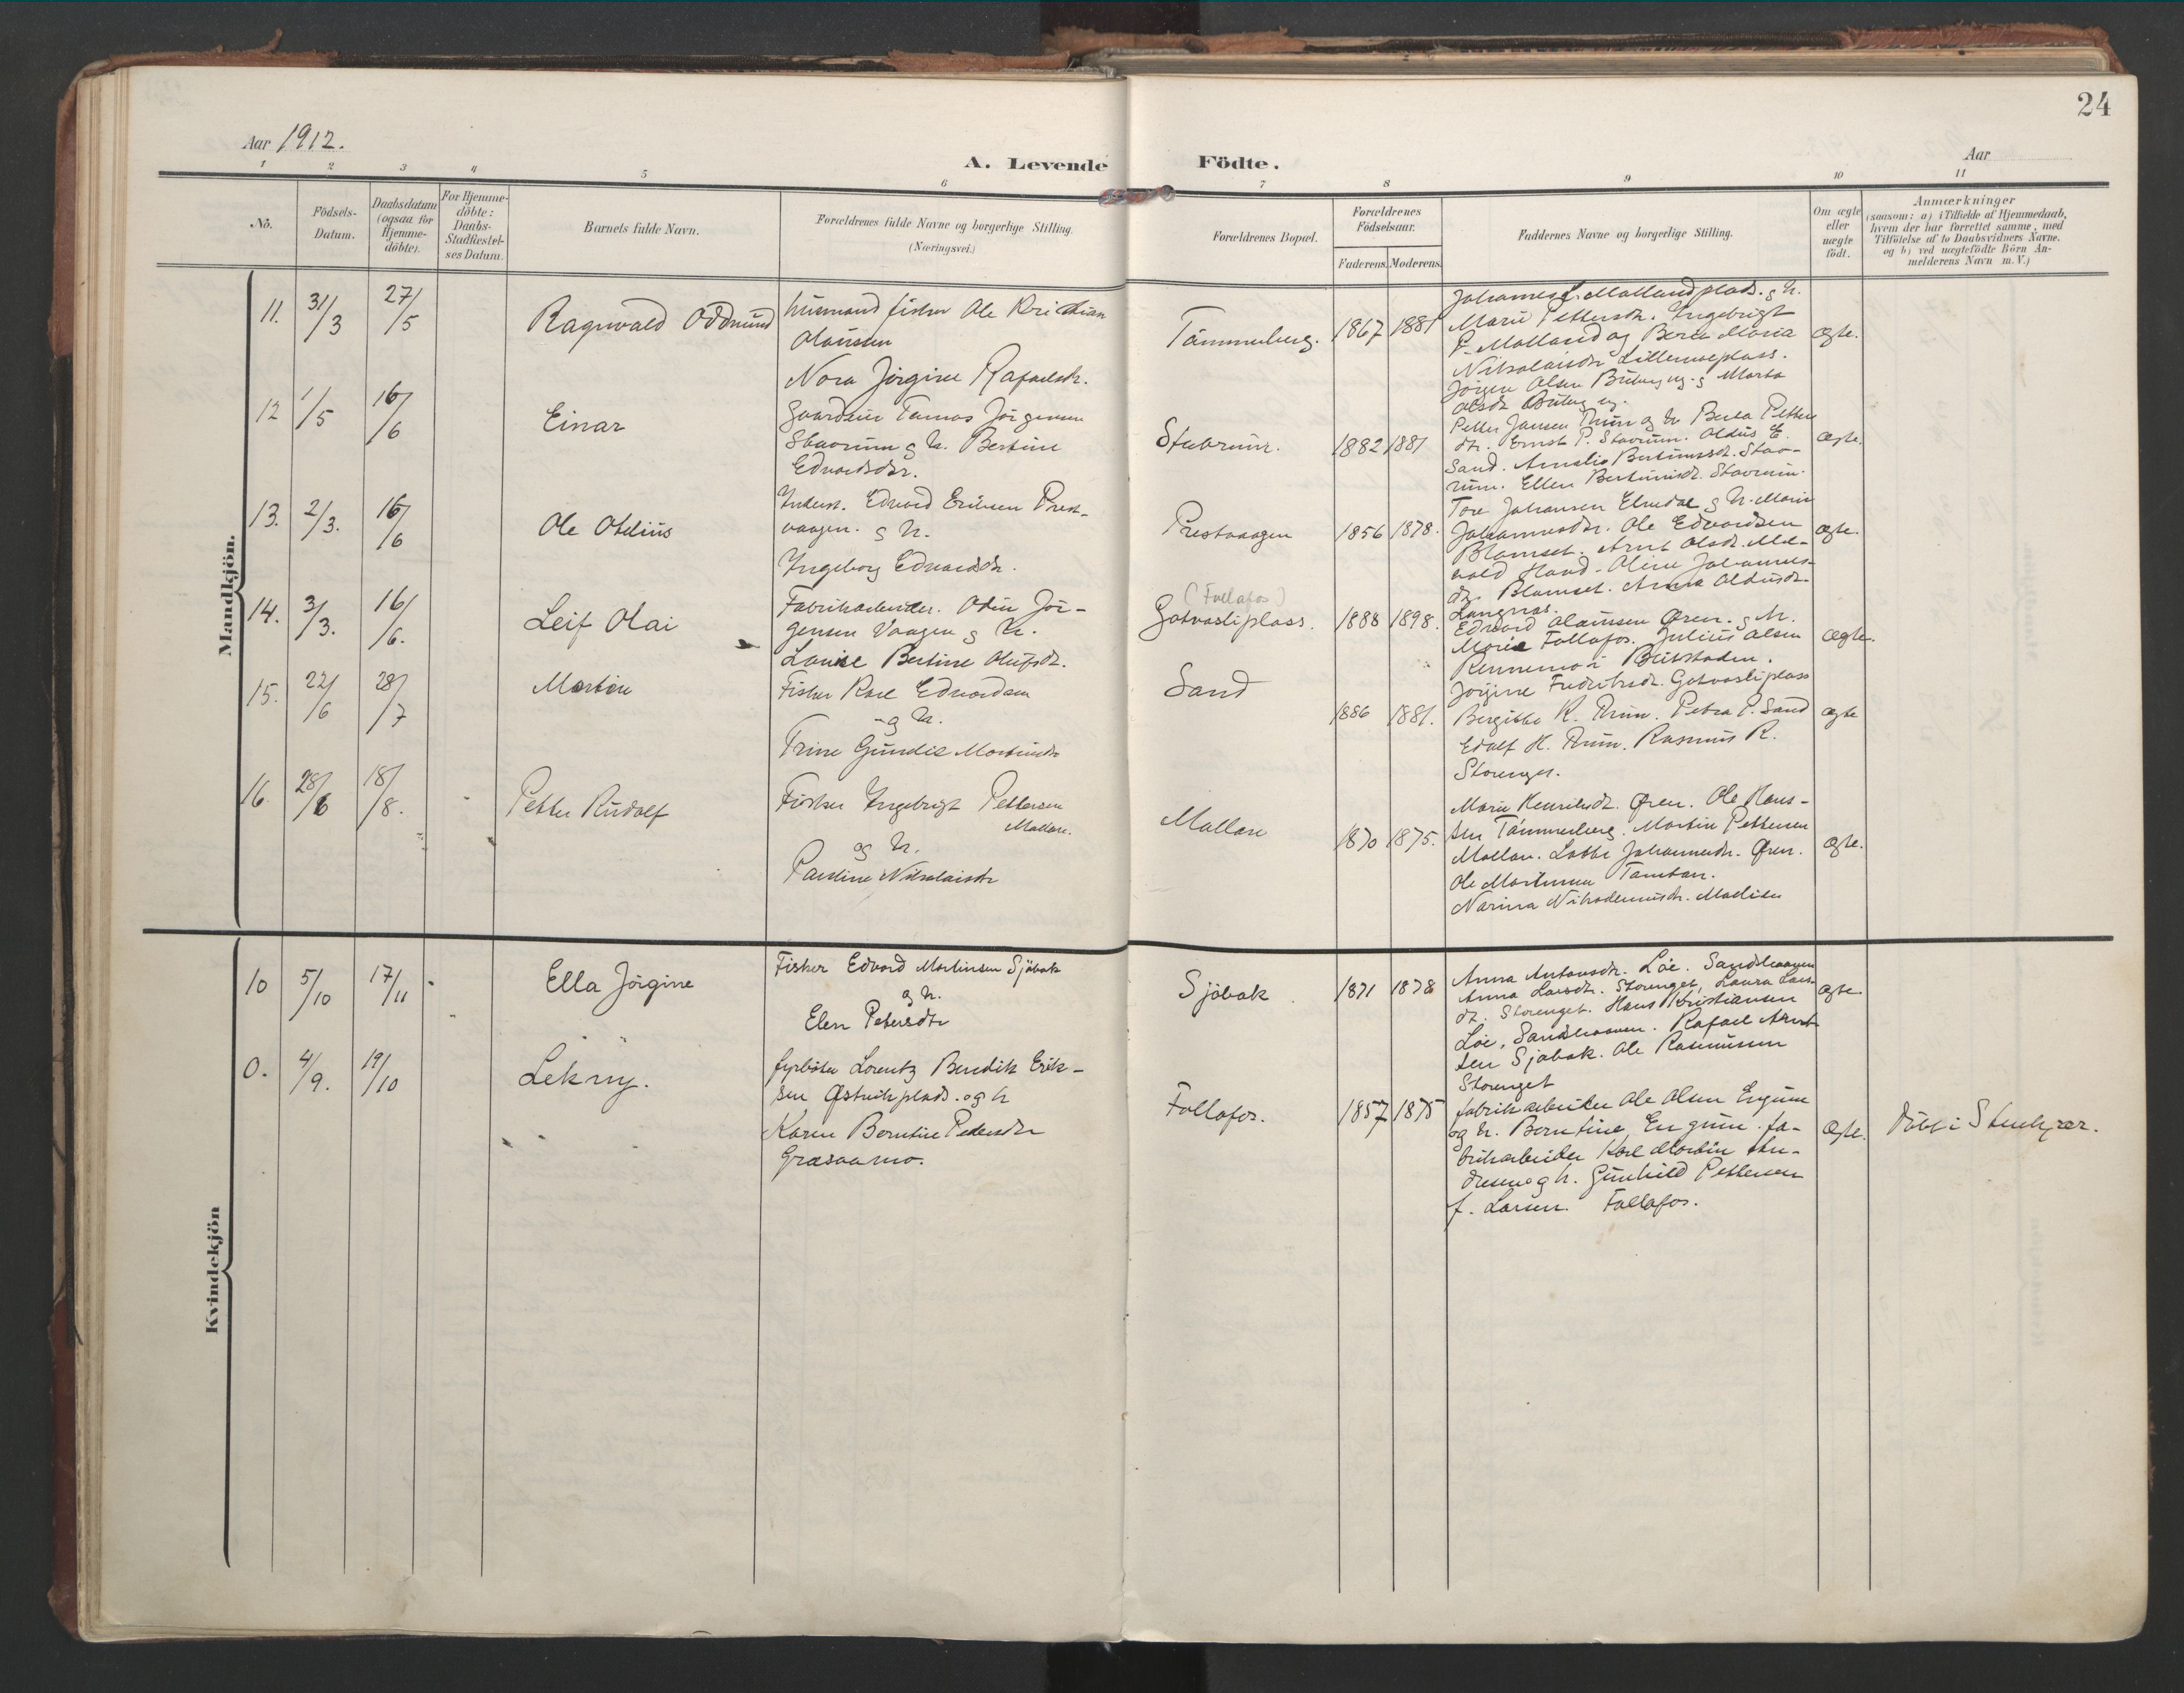 24
Aar 1912.
A. Levende Födte.
Aar
1 2 3 4 5 6 7 8 9 10 11
No.
Födsels-
Datum.
Daabsdatum
(ogsaa for
Hjemme-
döbte).
For Hjemme-
döbte:
Daabs-
Stadfæstel-
ses Datum.
Barnets fulde Navn.
Forældrenes fulde Navne og borgerlige Stilling.
(Næringsvei.)
Forældrenes Bopæl.
Forældrenes
Födselsaar.
Faderens. Moderens.
Faddernes Navne og borgerlige Stilling.
Om ægte
eller
uægte
födt.
Anmærkninger
(saasom: a) i Tilfælde af Hjemmedaab,
hvem der har forrettet samme, med
Tilföielse af to Daabsvidners Navne.
og b) ved uægtefödte Börn An-
melderens Navn m. V.)
Mandkjön.
11. 31/3 27/5 Ragnvald Oddmund
husmand fisker Ole Kristian
Olaussen
Nora Jörgine Rafaelsdr.
Tömmerberg. 1867 1881
Johannes L. Mallandplads. og h.
Marie Pettersdr. Ingebrigt
P. Malland og Beret Maria
Nikolaisdr Lillemoeplass.
Jörgen Olsen og Marta
Olsdr
ægte.
12 1/5 16/6 Einar
Gaardeier Tomas Jörgensen
Stavrum og h. Bertine
Edvardsdr.
Stavrum. 1882 1881
Petter Jansen og h Berta Petters
dr. Ernst P. Stavrum. Aldus E.
Sand. Amalie Bertinusdr. Stav-
rum. Ellen Bertinusdr. Stavrum.
ægte.
13. 2/3. 16/6 Ole Otelius
Inderst. Edvard Eriksen Prest-
vaagen. og h.
Ingeborg Edvardsdr.
Prestvaagen 1856 1878.
Tore Johansen Elvedal og h. Marie
Johannesdr. Ole Edvardsen
Blomset. Arnt Olsdr. Mel-
vold Haand. Oline Johannes-
dr. Blomset. Anna Aldusdr.
Langnas.
ægte.
14. 3/3. 16/6. Leif Olai
Fabrikarbeider. Odin Jör-
gensen Vaagen og h.
Louise Bertine Olufsdr.
(Follafos)
Gotvasliplass. 1888 1898.
Edvard Olaussen Øren. og h.
Marie Follafos. Julius Olsen
Rennemo i Beitstaden.
Jörgine Fredriksdr. Gotvasliplass
ægte.
15. 22/6 28/7 Martin
Fisker Karl Edvardsen
og h.
Trine Gundie Martinsdr
Sand
1886 1881.
Bergitte K. Petra P. Sand
Edolf H. Rasmus R.
Storenget.
ægte
16. 28/6 18/8. Petter Rudolf
Fisker Ingebrigt Pettersen
Mallan.
og h.
Pauline Nikolaisdr
Mallan
1870 1875.
Marie Henriksdr. Øren. Ole Hans-
sen Tömmerberg. Martin Pettersen
Mallan. Lotte Johannesdr. Øren.
Ole Martinsen
Narina Nikodemusdr.
ægte.
Kvindekjön
10 5/10 17/11 Ella Jörgine
Fisker Edvard Martinsen Sjöbak
og h.
Elen Petersdtr
Sjöbak 1871 1878
Anna Antonsdr. Löe. Sandshaaven
Anna Larsdr. Storenget, Laura Lars-
dr. Storenget. Hans Kristiansen
Löe, Sandshaaven. Rafael Arnt-
sen Sjöbak. Ole Rasmussen
Storenget
ægte.
0. 4/9. 19/10 Lekny.
fyrböter Lorentz Bendik Erik-
sen Østvikplads. og h
Karen Berntine Pedersdtr
Græsaamo.
Follafos. 1857 1875
fabrikarbeider Ole Olsen Engum
og h. Berntine Engum. fa-
brikarbeider Karl Martin An-
dresen og h. Gunhild Pettersen
f. Larsen. Follafos.
ægte. Döbt i Stenkjær.